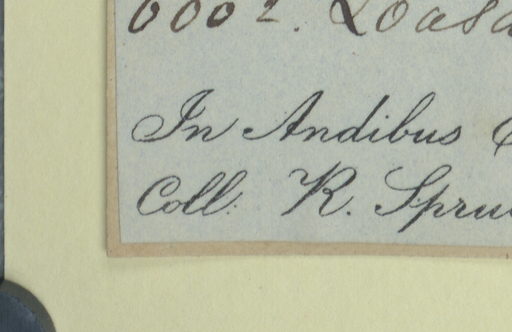 6002. Loasa
In Andibus
Coll. R. Spru